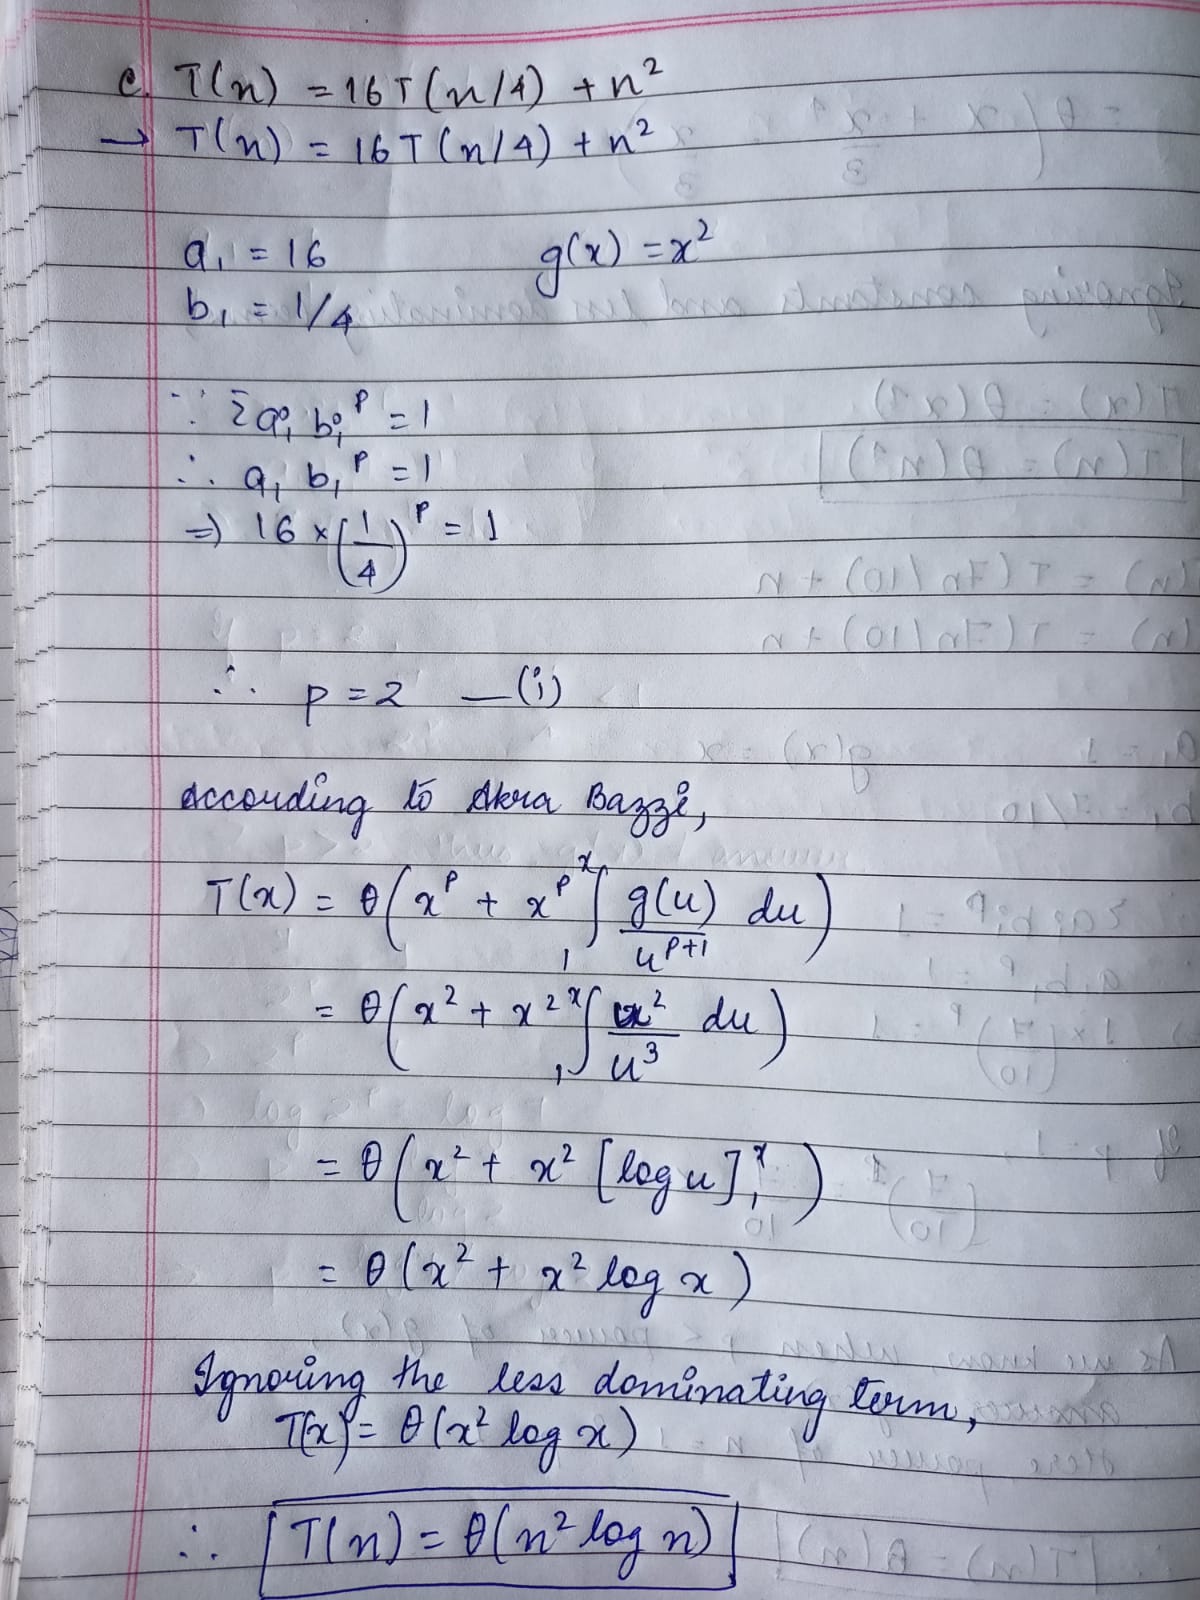 c. T(n) = 16T(n/4) + n²
→ T(n) = 16T(n/4) + n²
a₁ = 16 g(x) = x²
b₁ = 1/4
∵ Σ aᵢ bᵢᵖ = 1
∴ a₁ b₁ᵖ = 1
⇒ 16 × (1/4)ᵖ = 1
∴ p = 2 —(i)
According to Akra Bazzi,
T(x) = θ(xᵖ + xᵖ ₁∫ˣ g(u)/uᵖ⁺¹ du)
= θ(x² + x² ₁∫ˣ u²/u³ du)
= θ(x² + x² [log u]₁ˣ)
= θ(x² + x² log x)
Ignoring the less dominating term,
T(x) = θ(x² log x)
∴ T(n) = θ(n² log n)